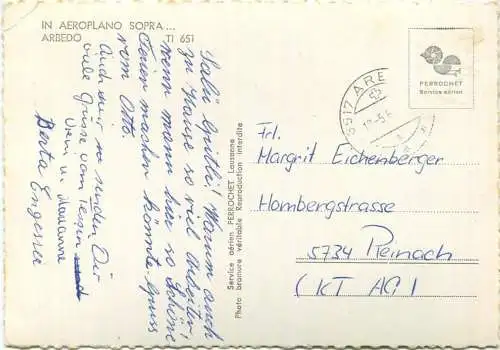 IN AEROPLANO SOPRA...
ARBEDO TI 651
Salü Gritli! Warum auch
zu Hause so viel arbeiten,
wenn mann hier so Schöne
Ferien machen könnte. Gruss
vom Otto.
Auch wir senden Dir
viele Grüsse vom Tessin
u. Marianne
Berta
Service aérien PERROCHET Lausanne
Photo bromure véritable Reproduction interdite
6517 ARBE
PERROCHET
Service aérien
Frl.
Margrit Eichenberger
Hombergstrasse
5734 Reinach
(KT AG)